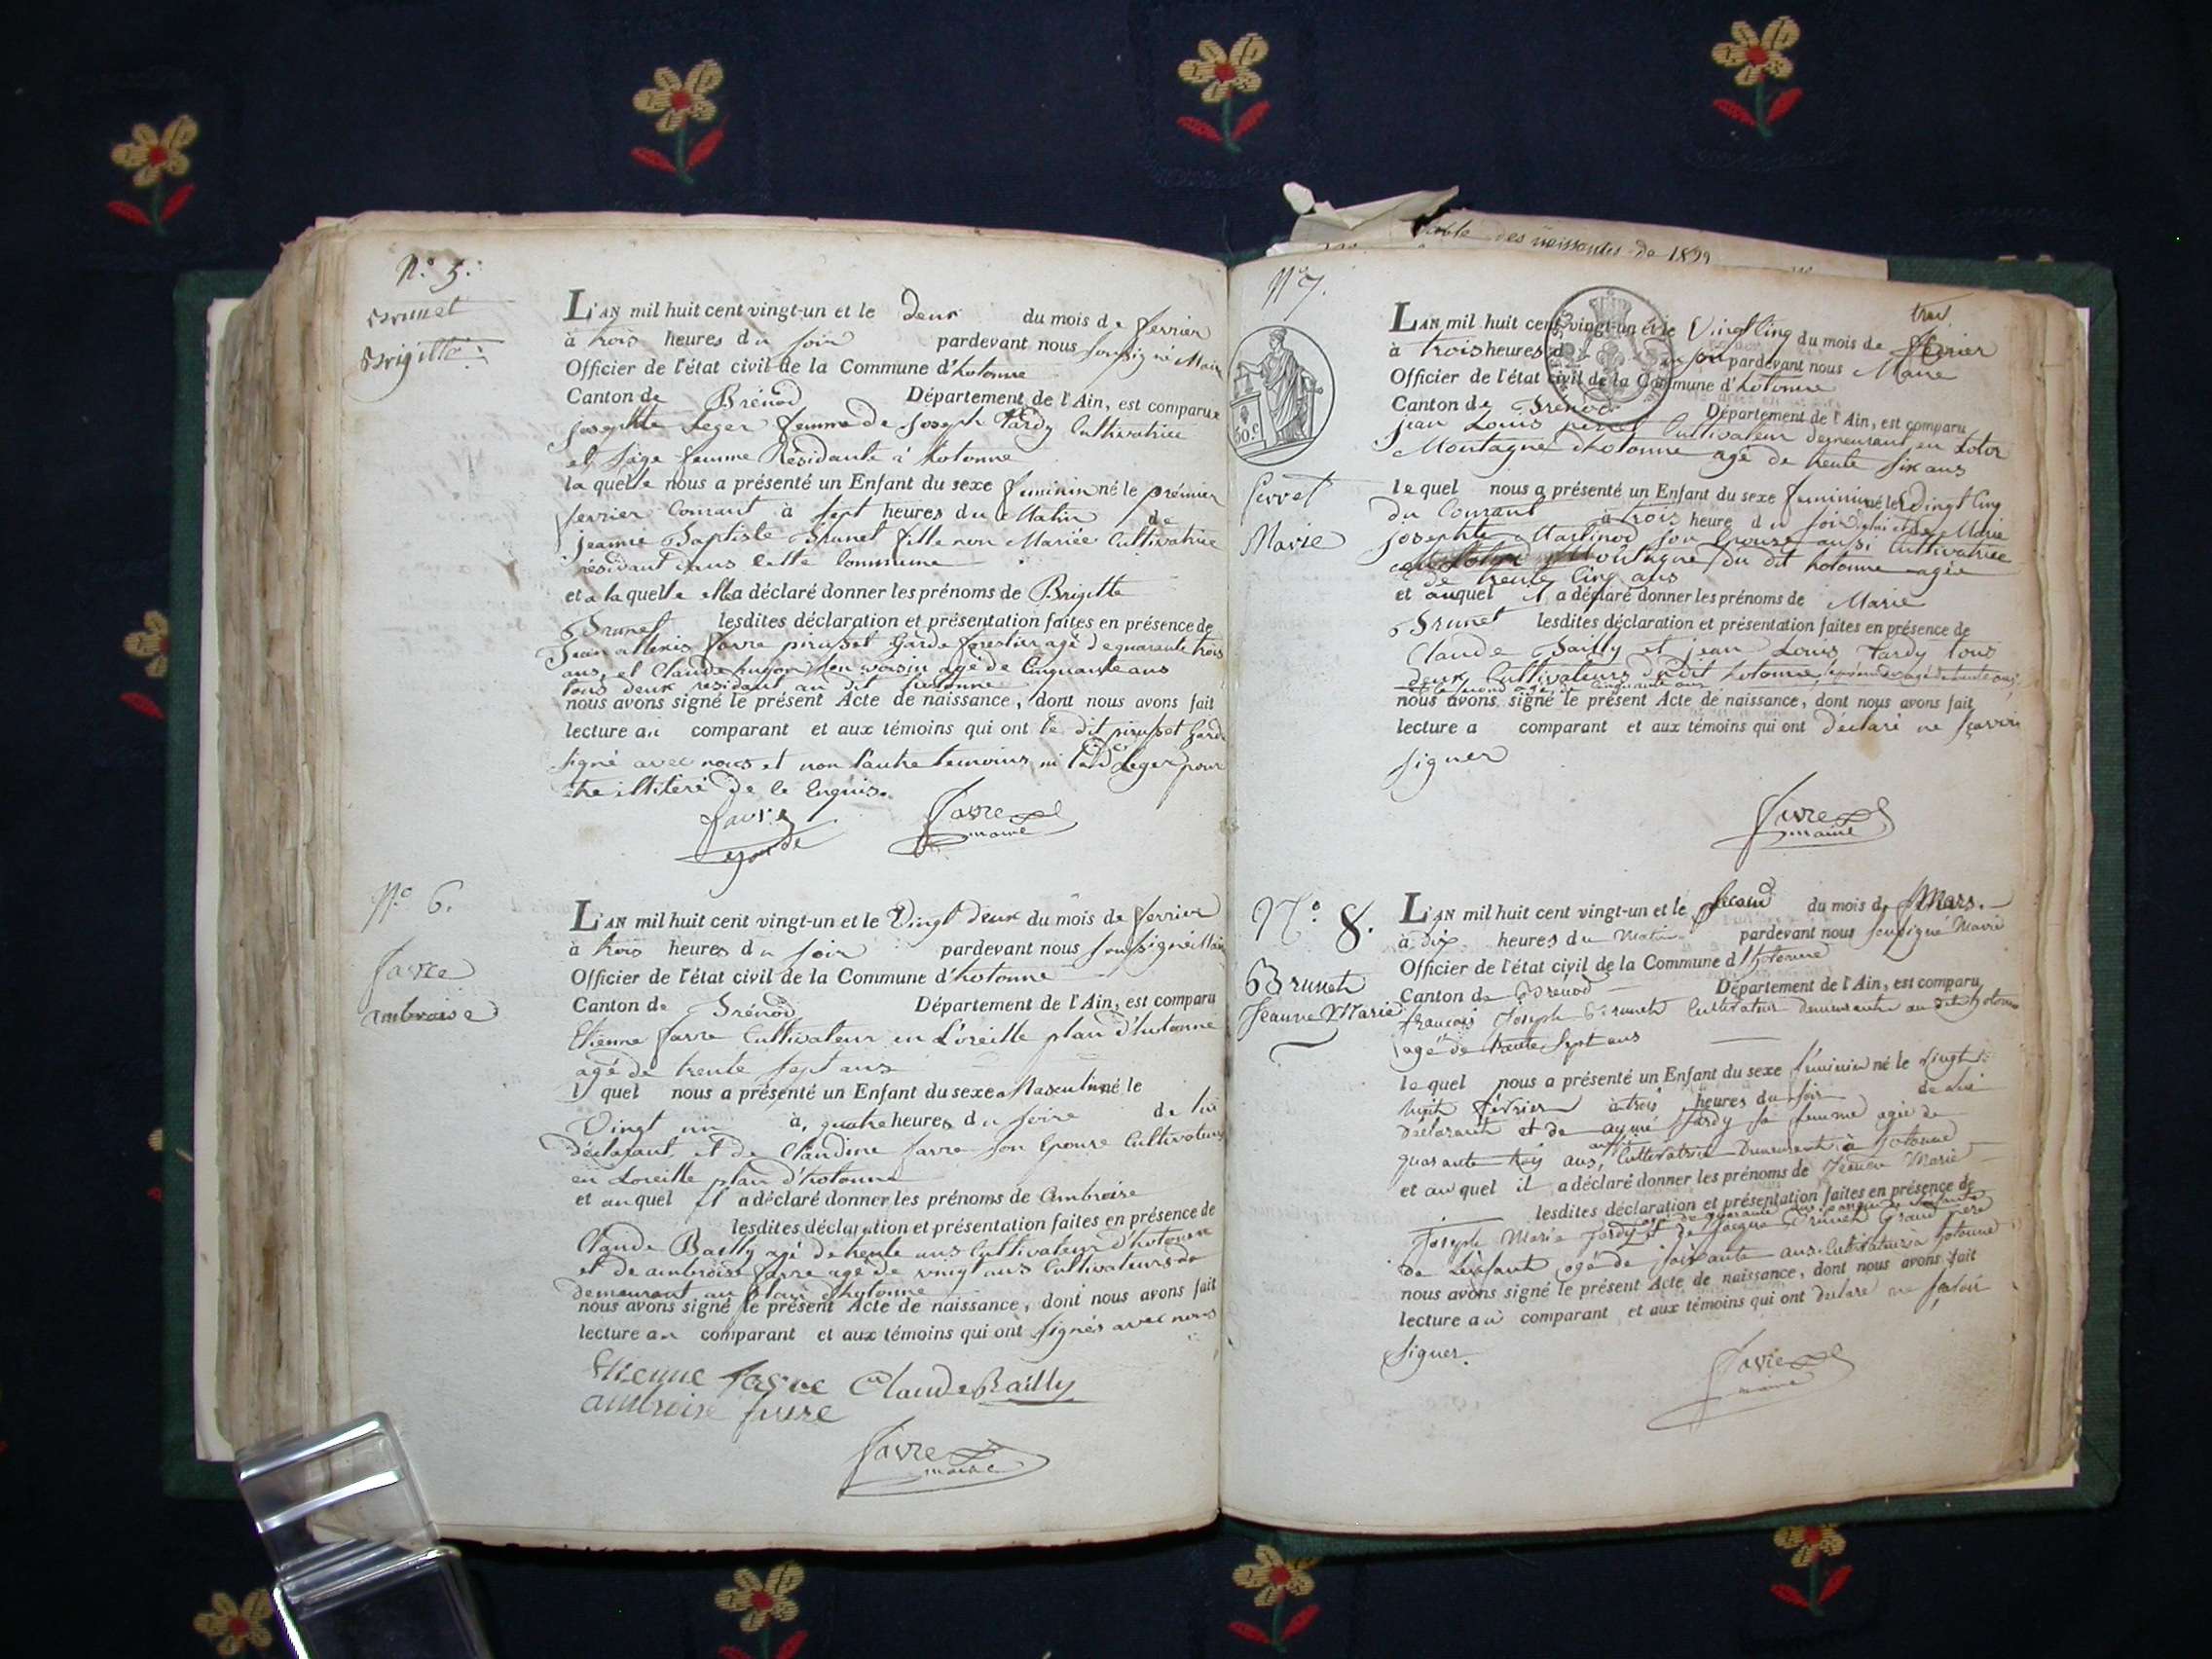 N.º 5.
Brunet
Brigitte
L'AN mil huit cent vingt-un et le deux du mois de fevrier
à trois heures du soir pardevant nous soussigné Maire
Officier de l'état civil de la Commune d'hotonne
Canton de Brénod Département de l'Ain, est comparue
josephte Leger femme de Joseph Tardy Cultivatrice
et sage femme Résidante à hotonne
la quelle nous a présenté un Enfant du sexe feminin né le prémier
fevrier Courant à sept heures du Matin de
jeanne Baptiste Brunet fille non Mariée Cultivatrice
résidant dans cette Commune
et a laquelle elle a déclaré donner les prénoms de Brigitte
Brunet lesdites déclaration et présentation faites en présence de
Jean allexis favre pirusset Garde forestier agé de quarante trois
ans, et Claude son voisin agé de Cinquante ans
tous deux residant au dit hotonne
nous avons signé le présent Acte de naissance, dont nous avons fait
lecture au comparant et aux témoins qui ont le dit pirusset Garde
signé avec nous et non l'autre temoins ni la d Leger pour
être illiteré de ce Enquis.
favre garde
favre maire
N.º 6.
favre
ambroise
L'AN mil huit cent vingt-un et le Vingt deux du mois de fevrier
à trois heures du soir pardevant nous soussigné Maire
Officier de l'état civil de la Commune d'hotonne
Canton de Brénod Département de l'Ain, est comparu
Etienne favre Cultivateur en L'oreille plan d'hotonne
agé de trente sept ans
l quel nous a présenté un Enfant du sexe Masculin né le
Vingt un à quatre heures du soire de lui
déclarant et de Claudine favre son Epouse Cultivateurs
en Loreille plan d'hotonne
et auquel il a déclaré donner les prénoms de Ambroise
lesdites déclaration et présentation faites en présence de
Claude Bailly agé de trente ans Cultivateur d'hotonne
et de ambroise favre agé de vingt ans Cultivateurs
demeurant au plan d'hotonne
nous avons signé le présent Acte de naissance, dont nous avons fait
lecture au comparant et aux témoins qui ont signés avec nous
Etienne favre Claude Bailly
ambroise favre
favre maire
table des naissantes de 18
Nº 7.
50.c
Perret
Marie
L'AN mil huit cent vingt-un et le Vingt Cinq du mois de fevrier
à trois heures du soir pardevant nous Maire
Officier de l'état civil de la Commune d'hotonne
Canton de Brénod Département de l'Ain, est comparu
jean Louis perret Cultivateur demeurant en
Montagne d'hotonne agé de trente six ans
le quel nous a présenté un Enfant du sexe feminin né le Vingt Cinq
du Courant à trois heure du soir de lui et de Marie
josephte Martinod son Epouse aussi Cultivatrice
Montagne du dit hotonne agée
de trente Cinq ans
et auquel il a déclaré donner les prénoms de Marie
Brunet lesdites déclaration et présentation faites en présence de
Claude Bailly et jean Louis Tardy tous
deux Cultivateurs du dit hotonne, le premier agé de trente ans,
et le second agé de Cinquante ans
nous avons signé le présent Acte de naissance, dont nous avons fait
lecture a comparant et aux témoins qui ont déclaré ne sçavoir
signer
favre maire
Nº 8.
Bruneth
Jeanne Marie
L'AN mil huit cent vingt-un et le second du mois de Mars.
à dix heures du Matin pardevant nous soussigné Maire
Officier de l'état civil de la Commune d'hotonne
Canton de Brénod Département de l'Ain, est comparu
françois Joseph Bruneth Cultivateur demeurant au dit hotonne
agé de trente sept ans
le quel nous a présenté un Enfant du sexe féminin né le vingt
huit février à trois heures du soir de lui
déclarant et de aymé Tardy sa femme agée de
quarante troy ans, aussi Cultivatrice Demeurant à hotonne
et au quel il a déclaré donner les prénoms de Jeanne Marie
lesdites déclaration et présentation faites en présence de
Joseph Marie Tardy et de Jacque Bruneth Grand père
de L'enfant agé de soixante ans Cultivateur a hotonne
nous avons signé le présent Acte de naissance, dont nous avons fait
lecture au comparant et aux témoins qui ont declaré ne savoir
signer.
favre maire